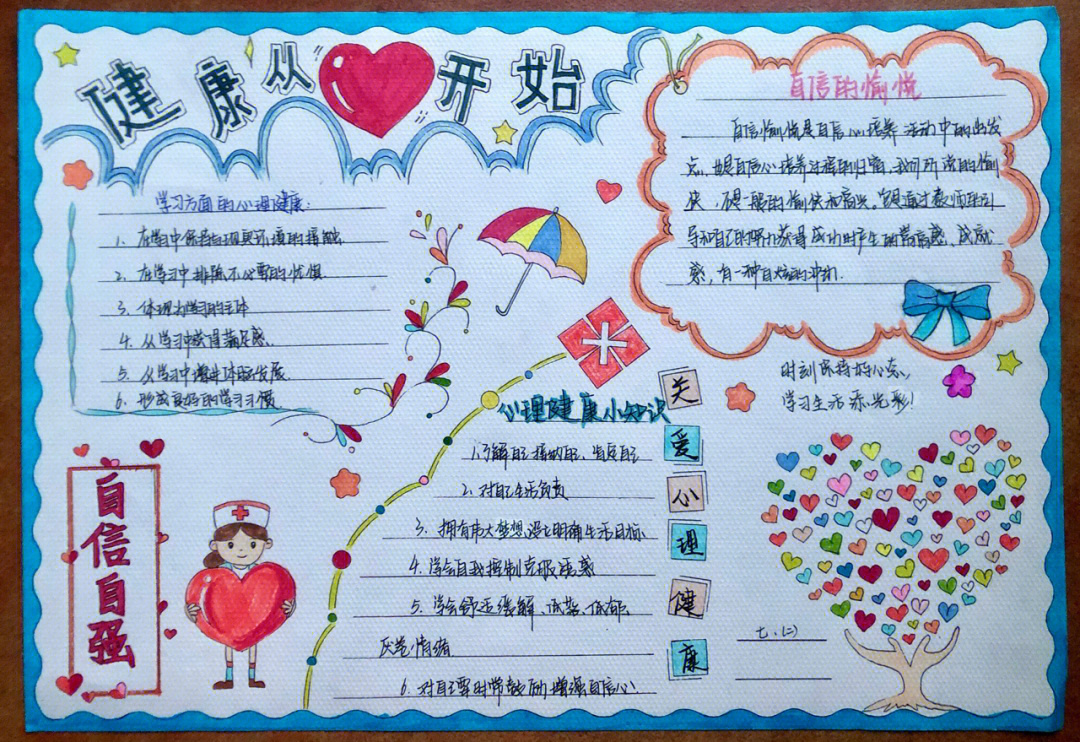 健康从开始
学习方面的心理健康:
1. 在学习中保持与现实环境的接触
2. 在学习中排除不必要的忧惧
3. 体现为学习的主体
4. 从学习中获得满足感
5. 从学习中增进体脑发展
6. 形成良好的学习习惯
自信的愉悦
自信愉悦是自信心培养活动中的出发
点,也是自信心培养过程的归宿,我们所说的愉
快,不是一般的愉快和高兴。它是通过教师的引
导和自己的努力获得成功时产生的满意感、成就
感,有一种自炫的冲动.
时刻保持好心态,
学习生活添光彩!
心理健康小知识
1.了解自己接纳自己、肯定自己
2. 对自己生活负责
3. 拥有伟大梦想,设立明确生活目标
4. 学会自我控制克服诱惑
5. 学会舒压缓解、焦虑、忧郁
厌卷情绪
6. 对自己要时常鼓励增强自信心.
关爱心理健康
自信自强
七.(二)